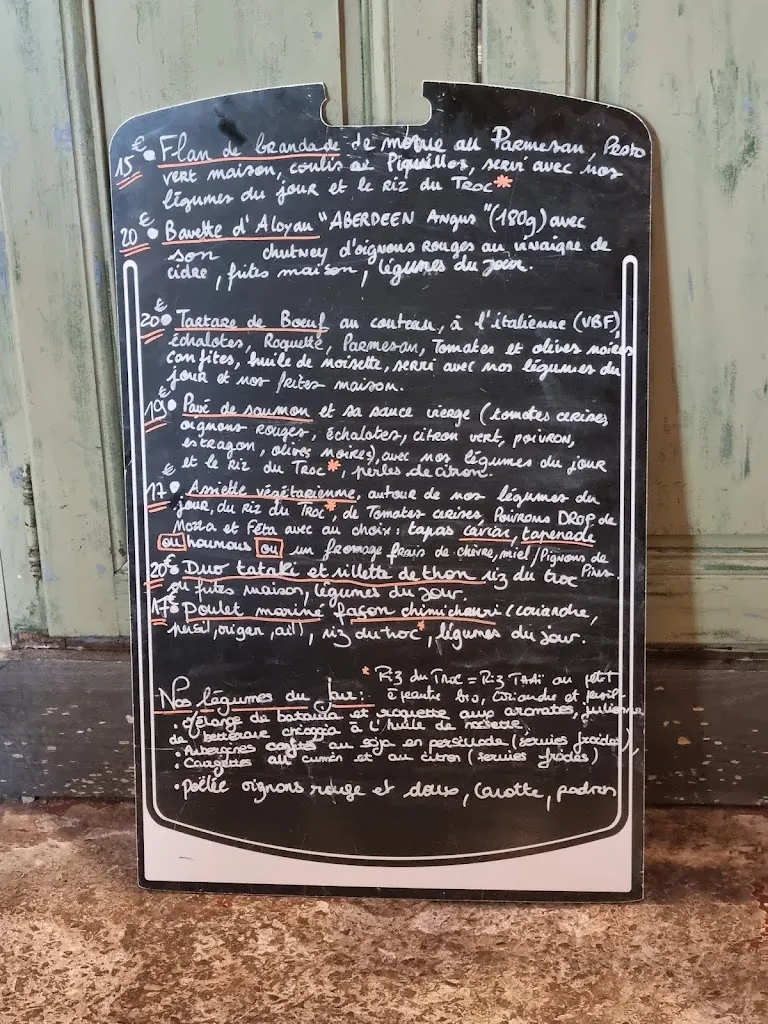 15€ • Flan de brandade de morue au Parmesan, Pesto
vert maison, coulis de Piquillos, servi avec nos
légumes du jour et le Riz du Troc*
20€ • Bavette d'Aloyau "ABERDEEN Angus" (180g) avec
son chutney d'oignons Rouges au vinaigre de
cidre, frites maison, légumes du jour.
20€ • Tartare de Boeuf au couteau, à l'italienne (VBF),
échalotes, Roquette, Parmesan, Tomates et olives noires
confites, huile de noisette, servi avec nos légumes du
jour et nos frites maison.
19€ • Pavé de saumon et sa sauce vierge (tomates cerises,
oignons rouges, échalotes, citron vert, poivron,
estragon, olives noires), avec nos légumes du jour
et le Riz du Troc*, perles de citron.
17€ • Assiette végétarienne, autour de nos légumes du
jour, du riz du Troc*, de Tomates cerises, Poivrons DROP de
Mozza et Féta avec au choix : tapas caviar, tapenade
ou houmous ou un fromage frais de chèvre, miel/Pignons de
Pins.
20€ Duo tataki et rillette de thon riz du troc
ou frites maison, légumes du jour.
17€ Poulet mariné façon chimichurri (coriandre,
persil, origan, ail), riz du troc*, légumes du jour.
* Riz du Troc = Riz THAÏ au petit
épeautre bio, Coriandre et persil.
Nos légumes du jour :
• Mélange de batavia et roquette aux aromates, julienne
de betterave chioggia à l'huile de noisette
• Aubergines confites au soja en persillade (servies froides)
• Courgettes au cumin et au citron (servies froides)
• poêlée oignons rouge et doux, Carotte, padron